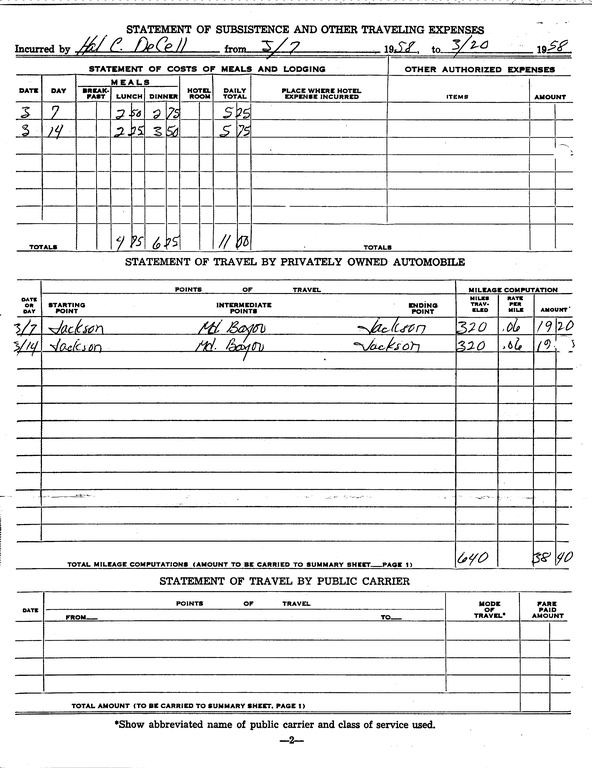 STATEMENT OF SUBSISTENCE AND OTHER TRAVELING EXPENSES
Incurred by Hal C. DeCell from 3/7 1958, to 3/20 1958
STATEMENT OF COSTS OF MEALS AND LODGING OTHER AUTHORIZED EXPENSES
DATE DAY MEALS HOTEL ROOM DAILY TOTAL PLACE WHERE HOTEL EXPENSE INCURRED ITEMS AMOUNT
BREAK-FAST LUNCH DINNER
3 7 2 50 2 75 5 25
3 14 2 25 3 50 5 75
TOTALS 4 75 6 25 11 00 TOTALS
STATEMENT OF TRAVEL BY PRIVATELY OWNED AUTOMOBILE
POINTS OF TRAVEL MILEAGE COMPUTATION
DATE OR DAY STARTING POINT INTERMEDIATE POINTS ENDING POINT MILES TRAV-ELED RATE PER MILE AMOUNT
3/7 Jackson Md. Bayou Jackson 320 .06 19 20
3/14 Jackson Md. Bayou Jackson 320 .06 19
TOTAL MILEAGE COMPUTATIONS (AMOUNT TO BE CARRIED TO SUMMARY SHEET—PAGE 1) 640 38 40
STATEMENT OF TRAVEL BY PUBLIC CARRIER
DATE POINTS OF TRAVEL MODE OF TRAVEL* FARE PAID AMOUNT
FROM— TO—
TOTAL AMOUNT (TO BE CARRIED TO SUMMARY SHEET, PAGE 1)
*Show abbreviated name of public carrier and class of service used.
—2—